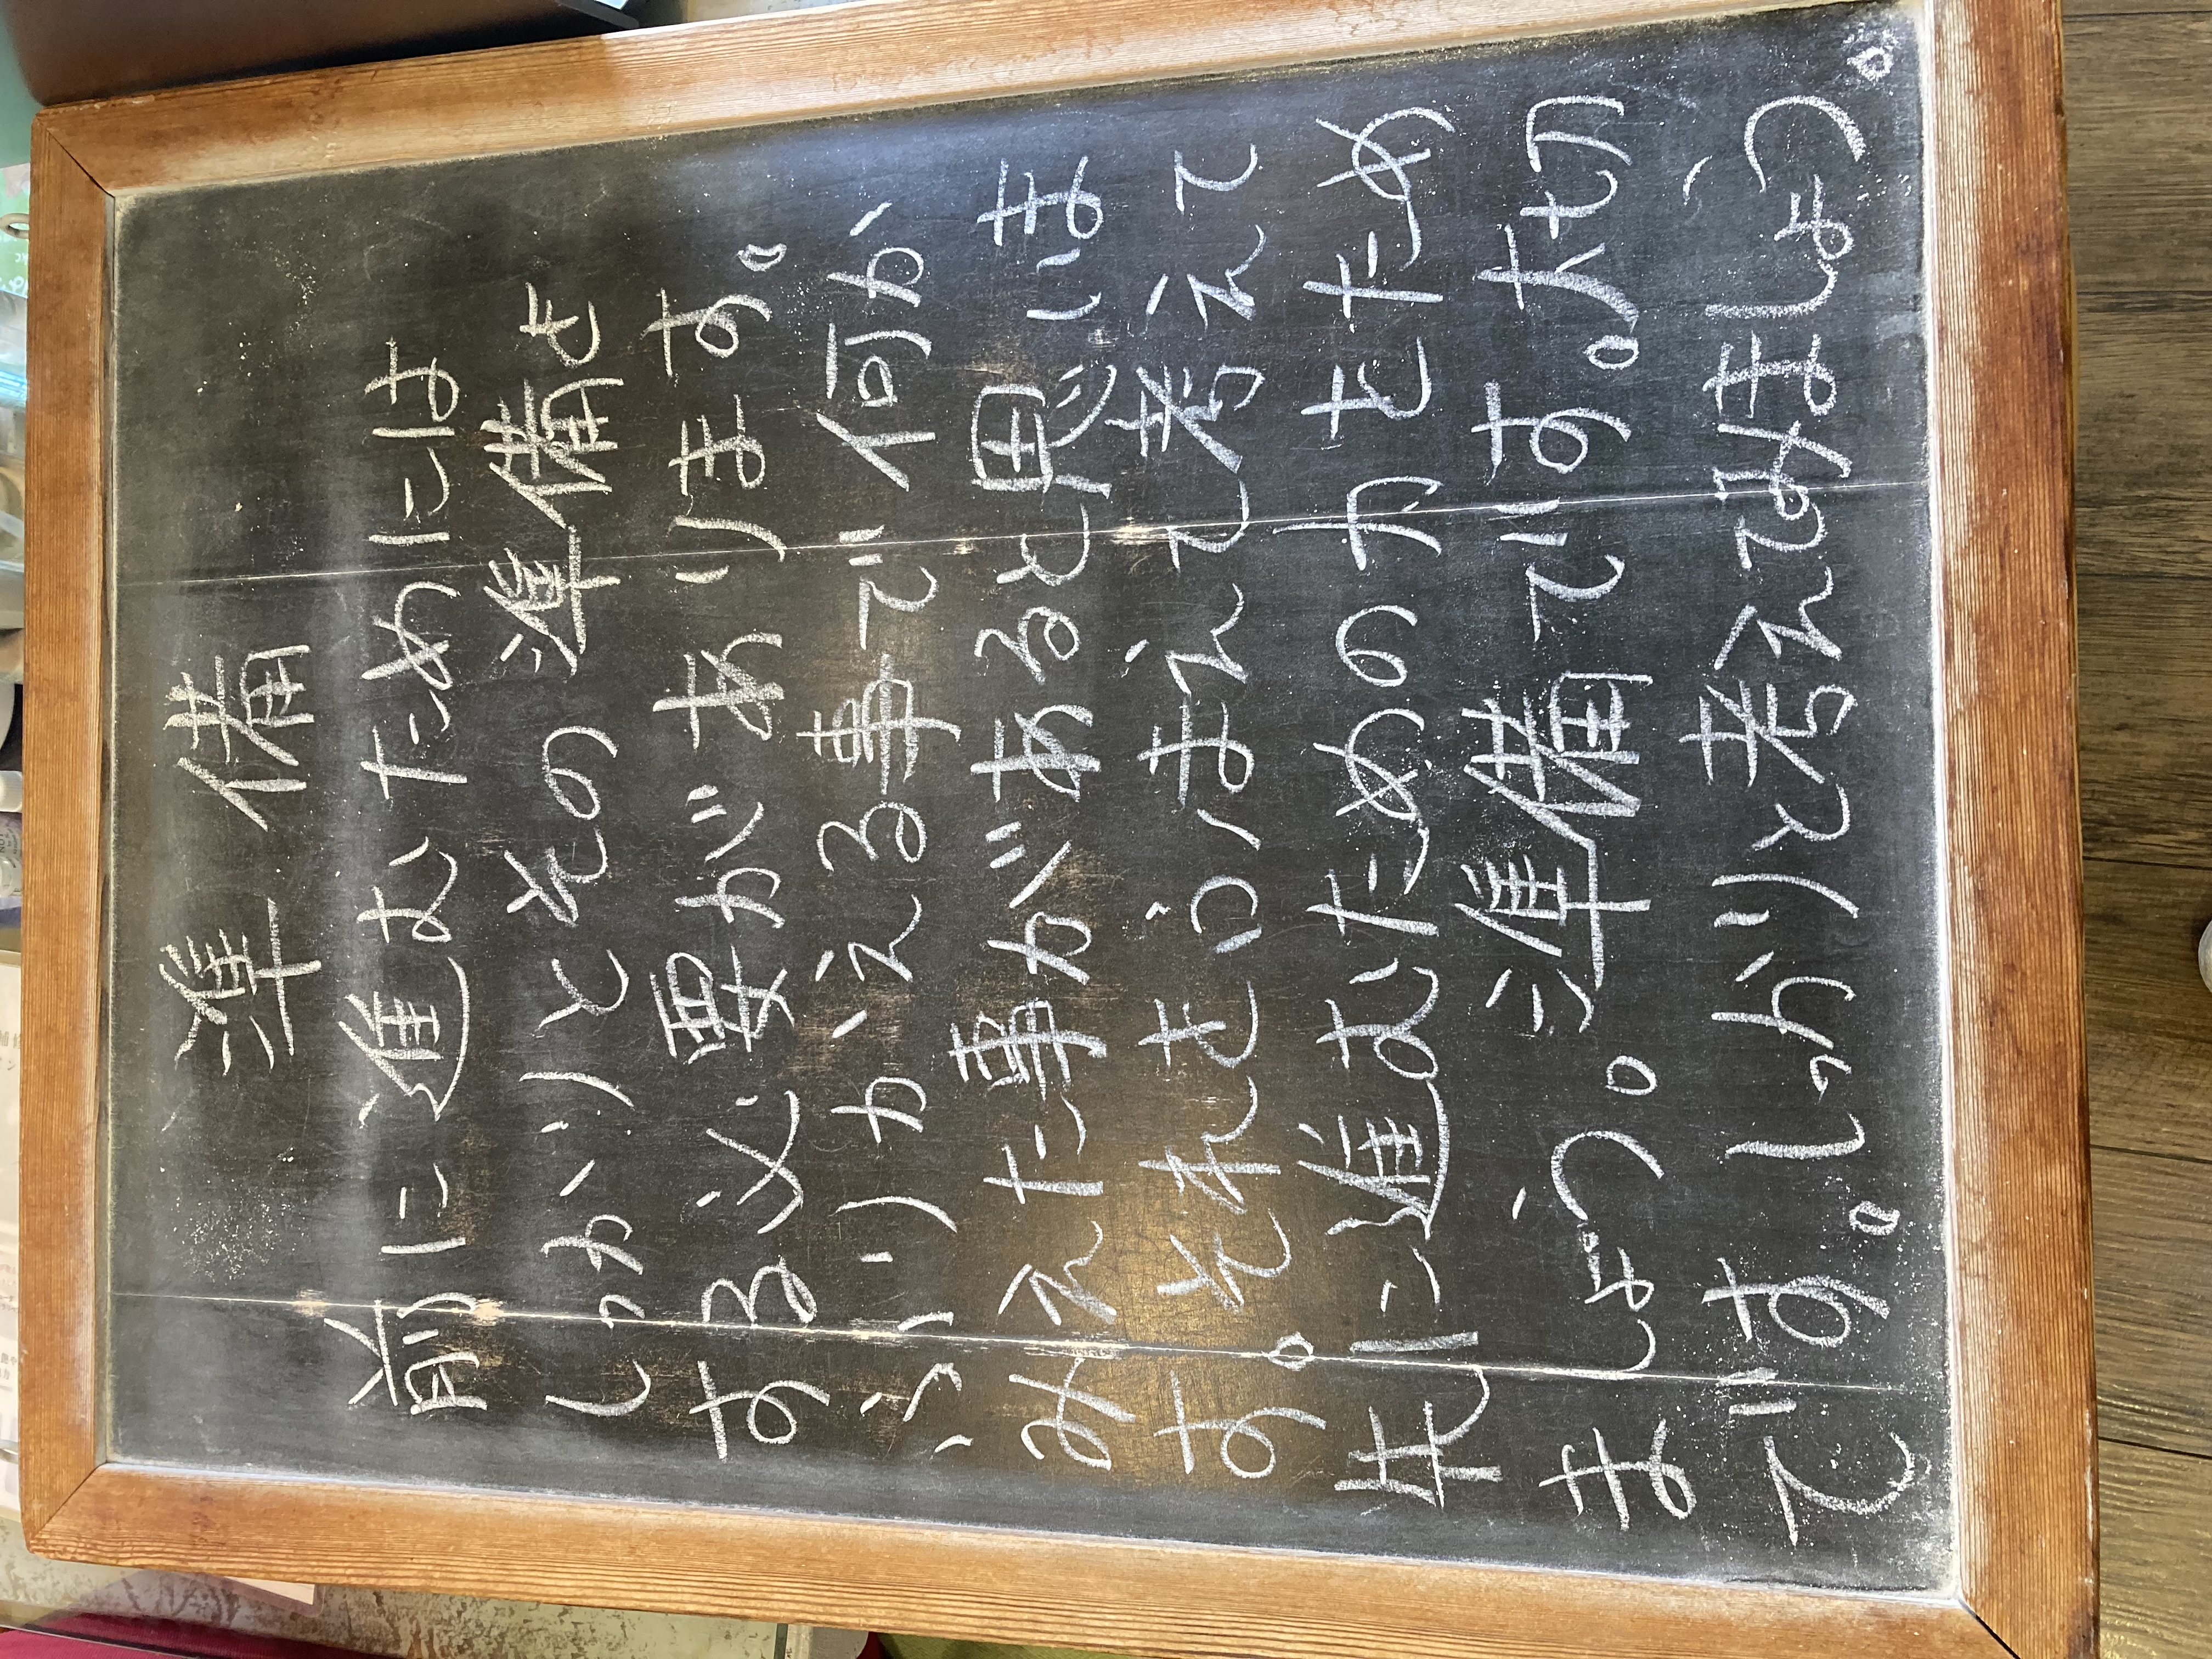 準備
前に進むためには
しっかりとその準備を
する必要があります。
ふりかえる事で何か
みえた事があると思いま
す。それをふまえて考えて
先に進むための力をため
ましょう。準備です。大切
です。しっかりと考えてみましょう。